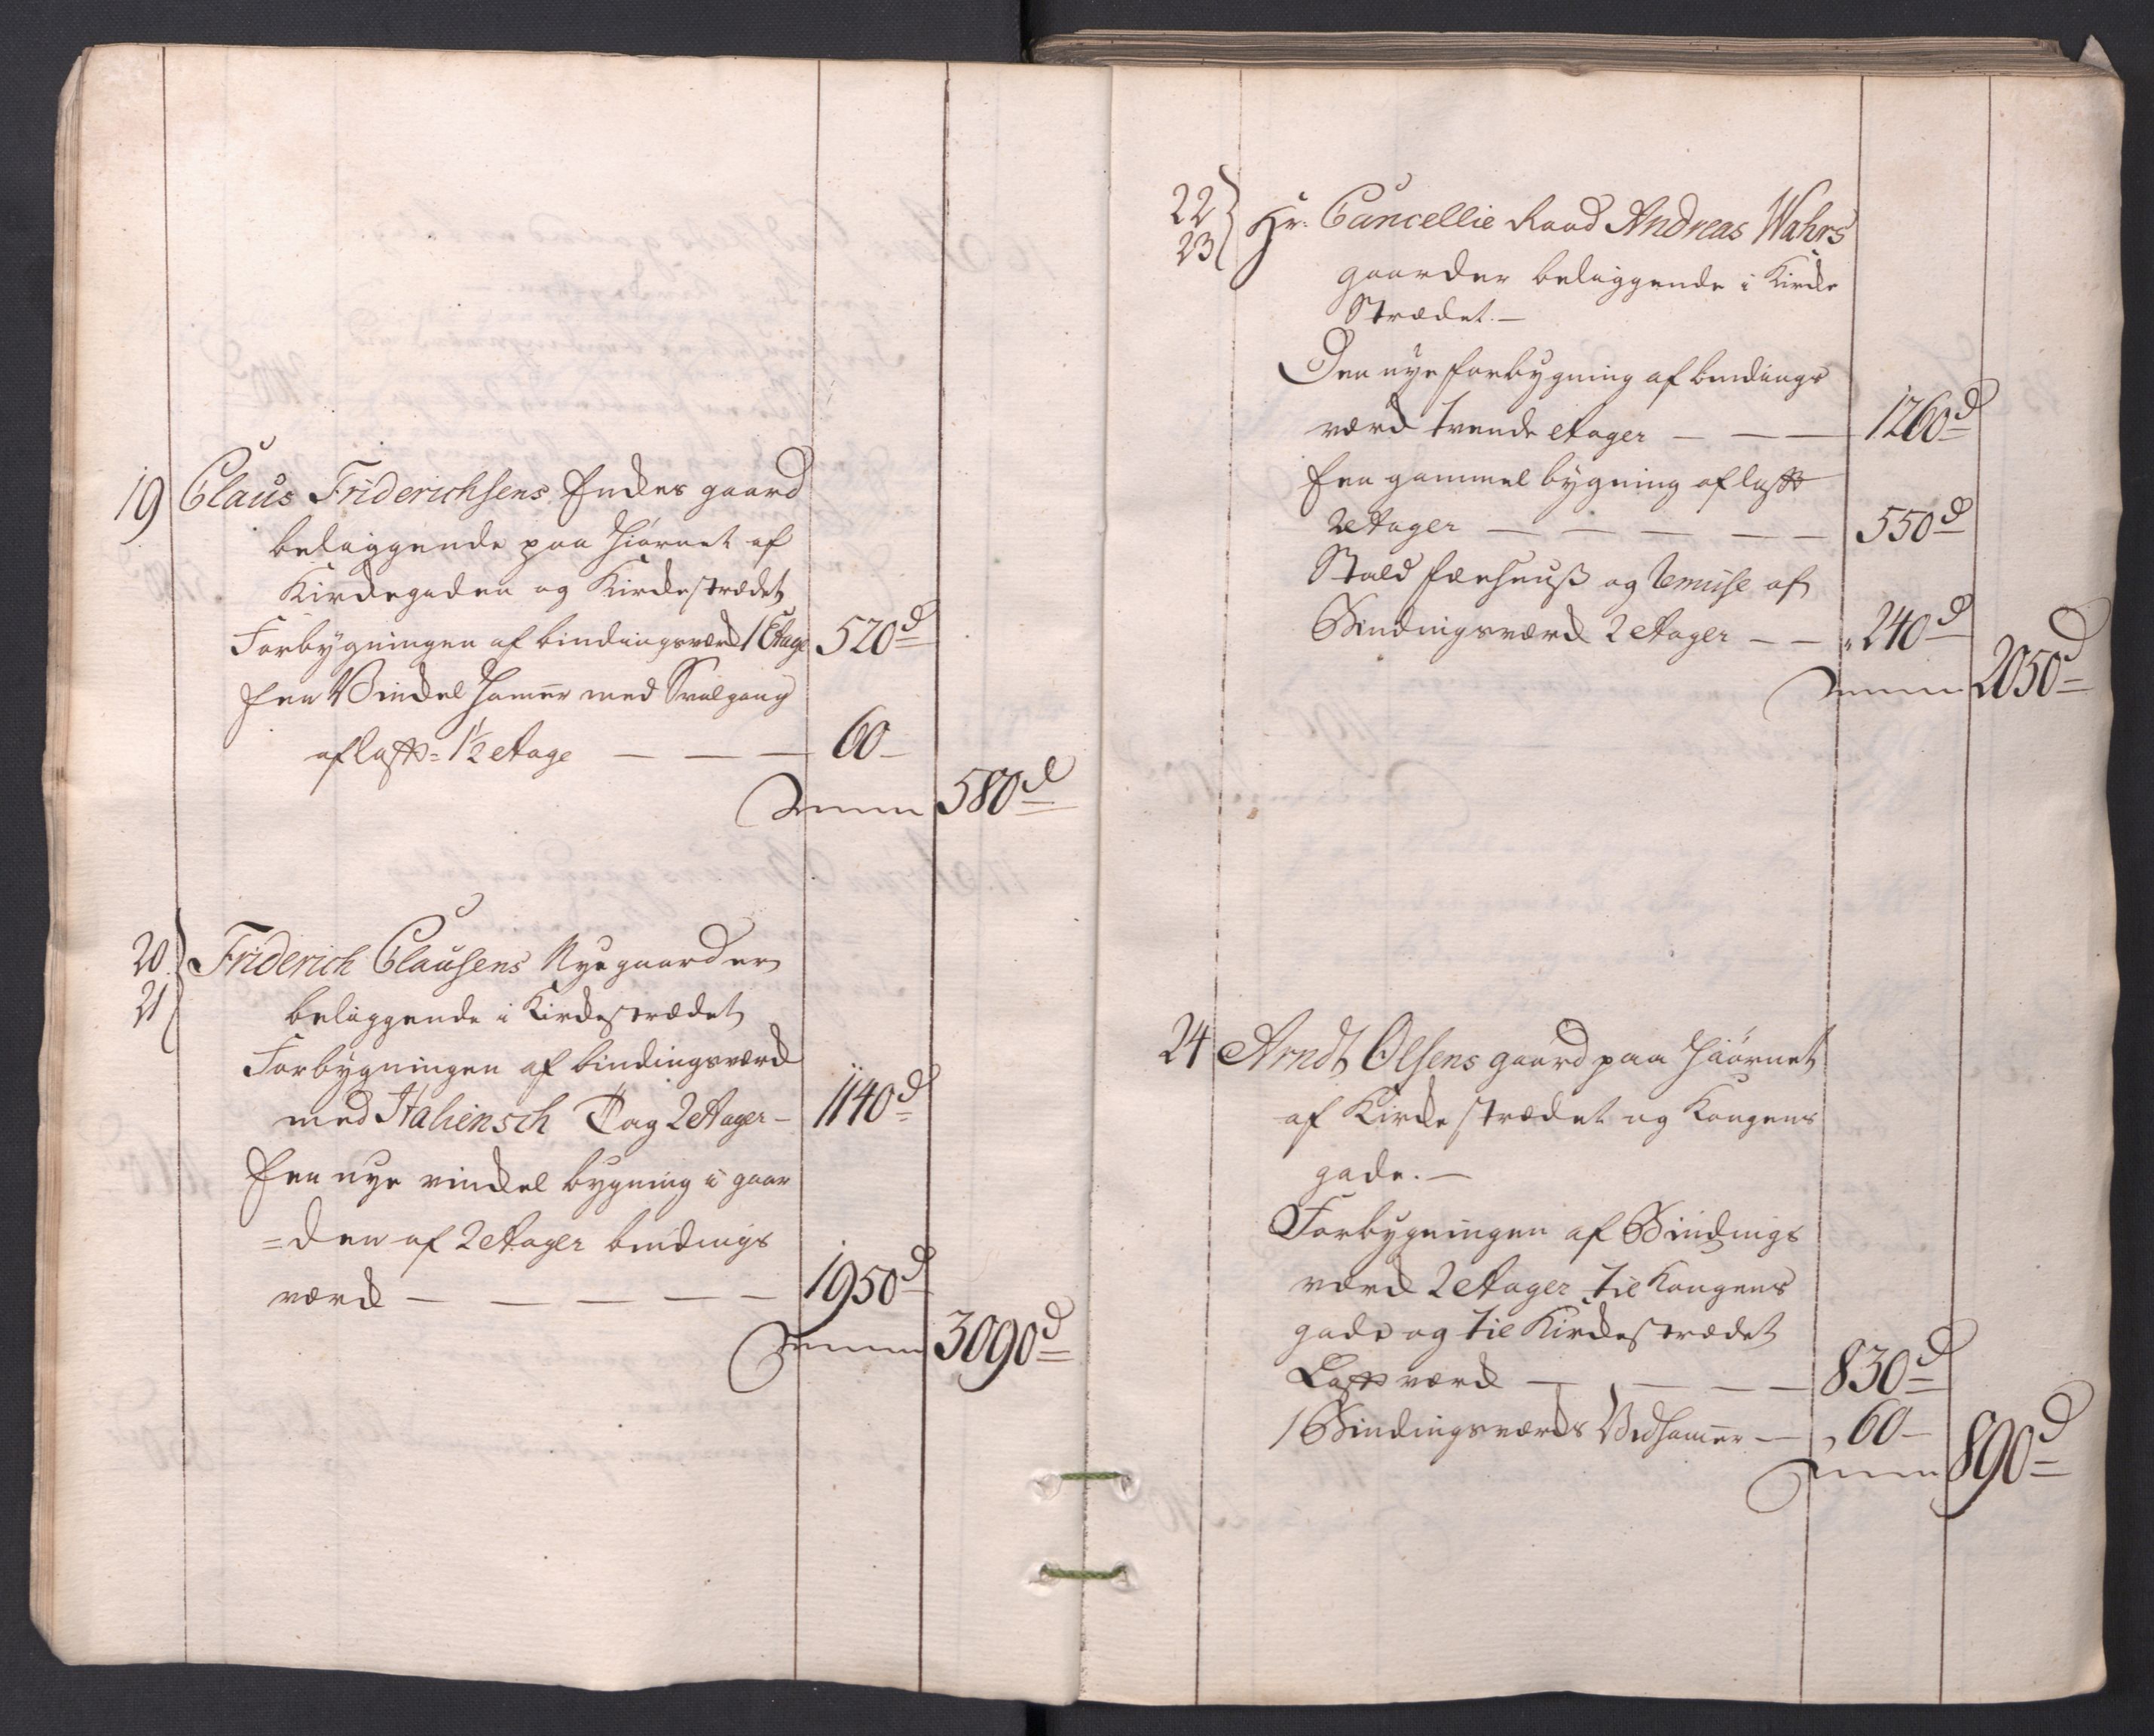 19 Claus Friderichsens Enckes gaard
beliggende paa Hiørnet af
Kirckegaden og Kirckestrædet
Forbygningen af bindingsværck 1 Etage 520 d
Een Windel Hamer med Svalgang
af laftt= 1½ etage — — — 60 –
Summa 580 d
20
21 Friderich Clausens Nye gaarder
beliggende i Kirckestrædet
Forbygningen af bindingsværck
med Italiensch Tag 2 etager – 1140 d
Een nye vinckel bygning i gaar
= den af 2 etager bindings
værck — — — — — 1950 d
Summa 3090 d
22
23 Hr: Cancellie Raad Andreas Wahrs
gaarder beliggende i Kircke
Strædet. —
Den nye forbygning af bindings
værck trende etager — — — 1260 d
Een gammel bygning af laftt
2 etager — — — — — 550 d
Stald Fæehuus og Remise af
Bindingsværck 2 etager — — 240 d
Summa 2050 d
24 Arndt Olsens gaard paa Hiørnet
af Kircke strædet og Kongens
gade. —
Forbygningen af Bindings
værck 2 etager til Kongens
gade og til Kirckestrædet
Laftt værck — — — — 830 d
1 Bindingsværcks Vedhamer — 60 –
Summa 890 d